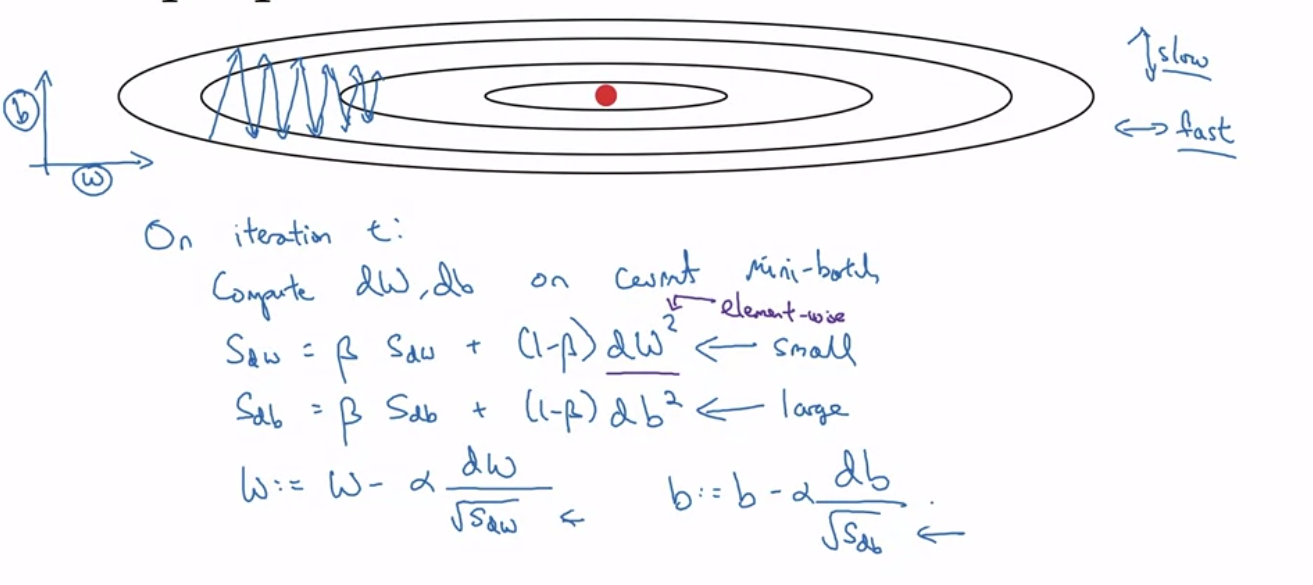 b
w
slow
fast
On iteration t:
Compute dW, db on current mini-batch
element-wise
S_dw = β S_dw + (1-β) dW² ← small
S_db = β S_db + (1-β) db² ← large
W := W - α dW/√S_dw ← b := b - α db/√S_db ←